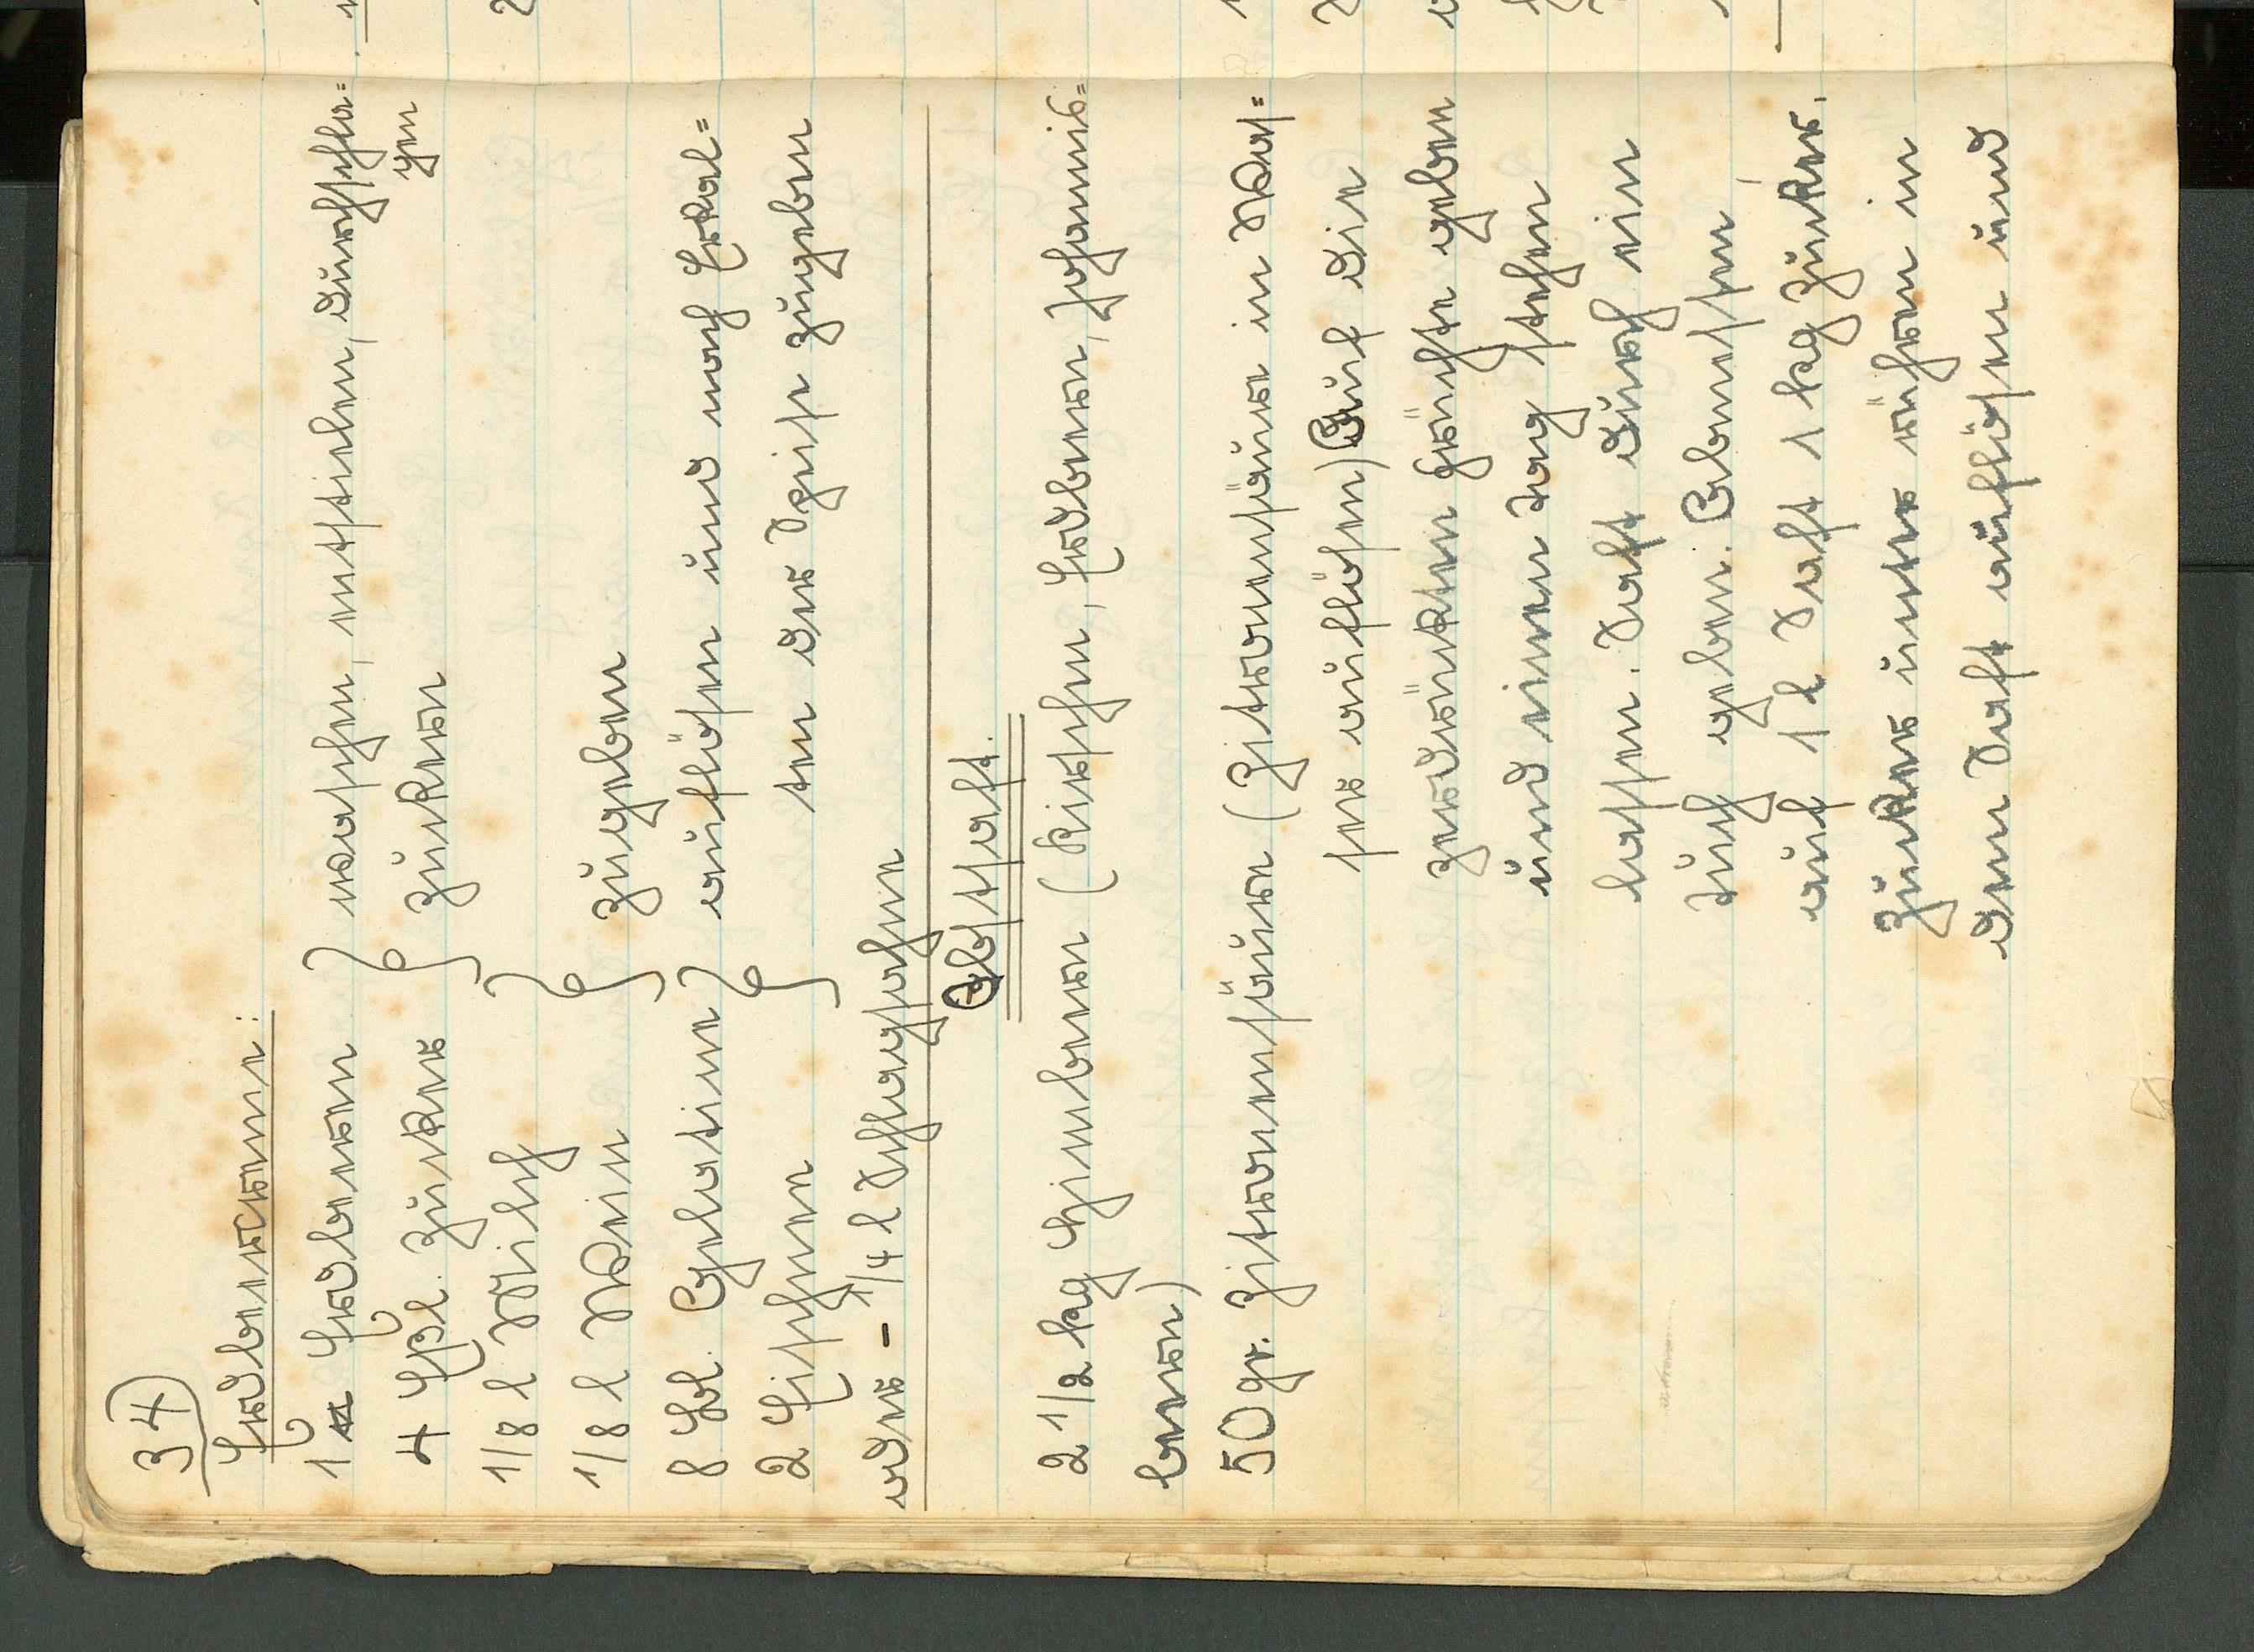 34
Erdbeercreme:
1 l Erdbeeren
waschen, entstielen, durchschla=
gen
4 Eßl. Zucker
Zuckern
1/8 l Milch
1/8 l Wein
zugeben
8 Bl. Gelatine
auflösen und nach Erkal=
2 Eischnee
ten der Speise zugeben
oder - 1/4 l Schlagsahne
Obstsaft.
2 1/2 kg Himbeeren (Kirschen, Erdbeeren, Johannis=
beeren)
50 gr. Zitronensäure (Zitronensäure in Was=
ser auflösen) Auf die
zerdrückten Früchte geben
und einen Tag stehen
lassen. Saft durch ein
Tuch geben. Abmessen,
auf 1 l Saft 1 kg Zucker.
Zucker unter rühren in
dem Saft auflösen und